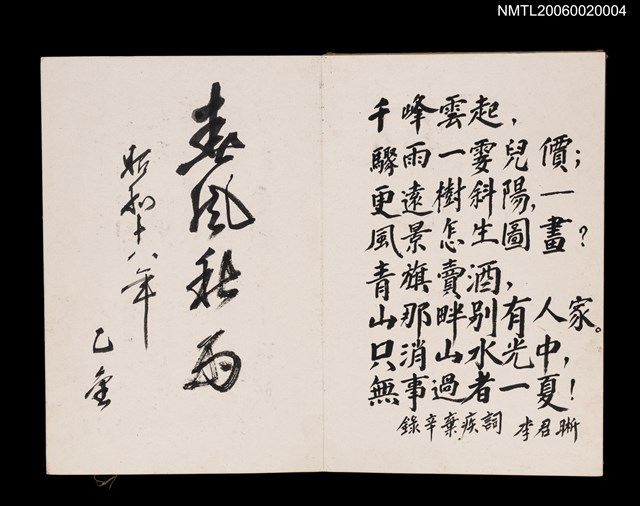 NMTL20060020004
千峰雲起,
驟雨一霎兒價;
更遠樹斜陽,一
風景怎生圖畫?
青旗賣酒,
山那畔別有人家。
只消山水光中,
無事過者一夏!
錄辛棄疾詞 李君晰
春風秋雨
昭和十八年
乙金